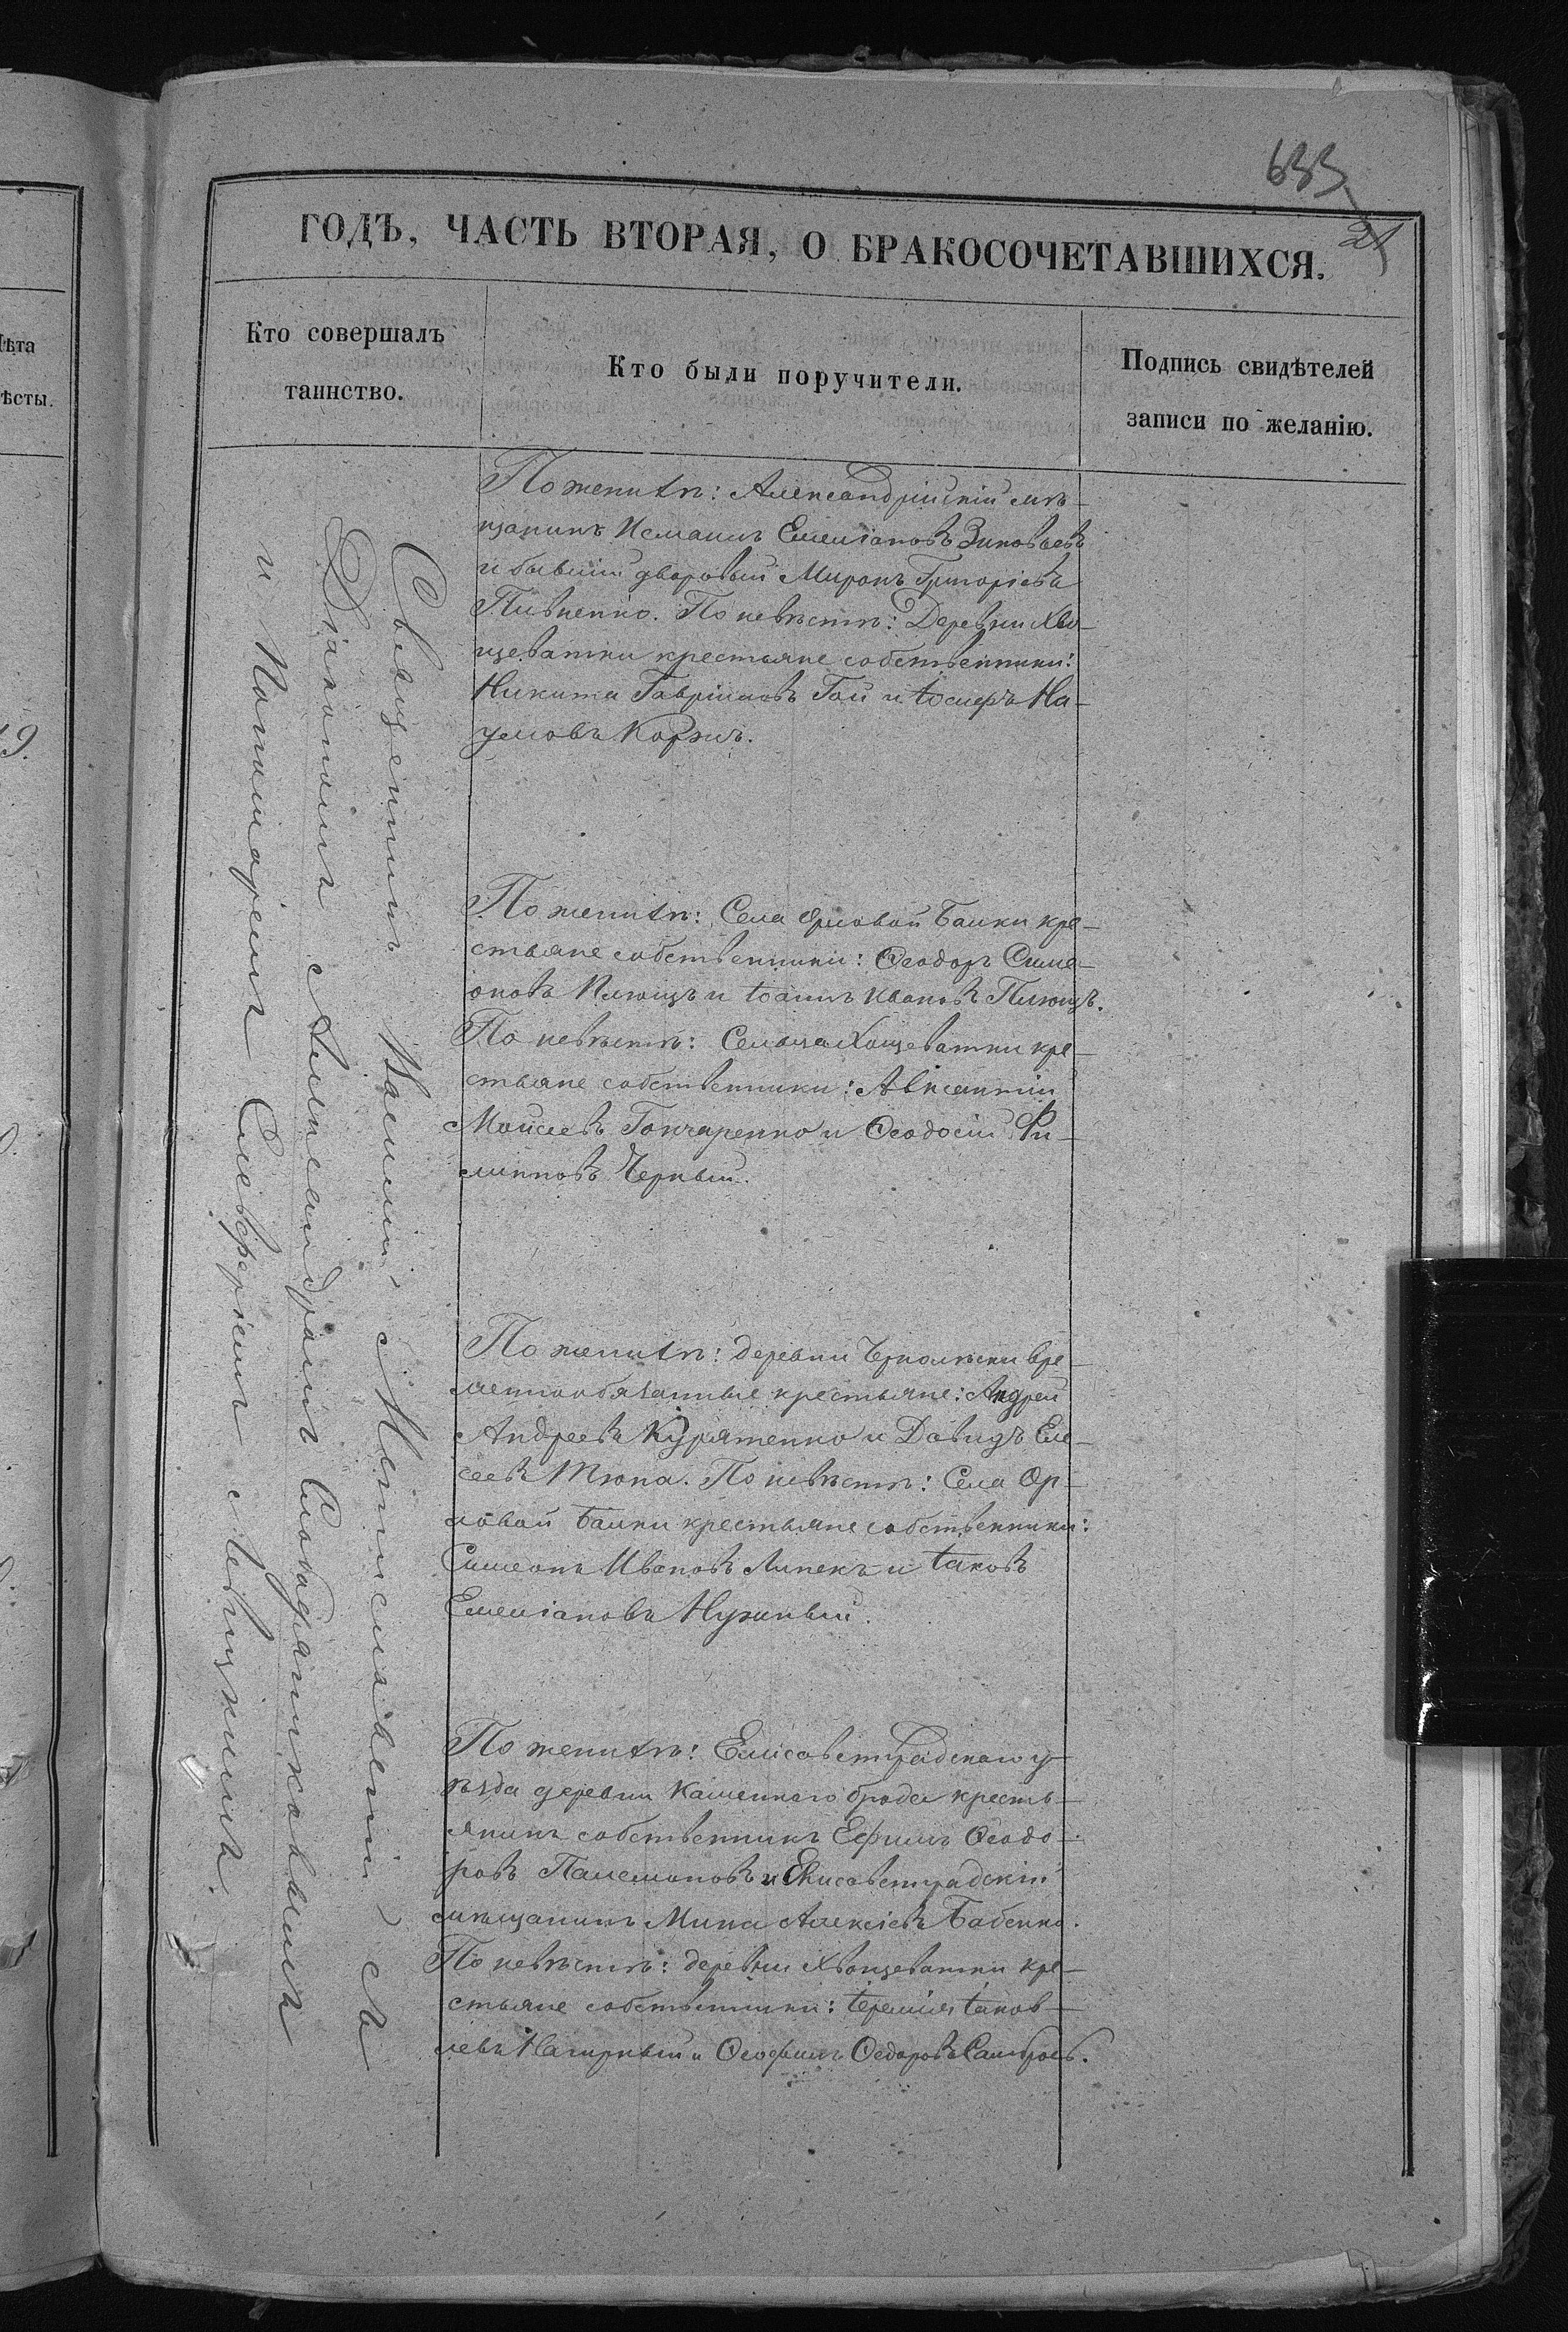 633
21
ГОДЪ, ЧАСТЬ ВТОРАЯ, О БРАКОСОЧЕТАВШИХСЯ.
Кто совершалъ
таинство.
Кто были поручители.
Подпись свидѣтелей
записи по желанію.
ѣта
ѣсты.
Священникъ Василій Мстиславскій съ
Діакономъ Александромъ
и Пономаремъ Елевферіемъ Левицкимъ.
По женихѣ: Александрійскій мѣ-
щанинъ Исмаилъ Емеліановъ Зиновьевъ
и бывшій дворовый Миронъ Григоріевъ
Пивненко. По невѣстѣ: Деревни Хво-
щеватки крестьяне собственники:
Никита Гавріиловъ Гай и На-
умовъ Коржъ.
По женихѣ: Села Орловой Балки кре-
стьяне собственники: Ѳеодоръ Симе-
оновъ и Іоаннъ Ивановъ
По невѣстѣ: Сельца Хощеватки кре-
стьяне собственники: Авксентій
Моисеевъ Гончаренко и Ѳеодосій Фи-
липповъ Черный.
По женихѣ: деревни вре-
меннообязанные крестьяне: Андрей
Андреевъ Куриленко и Давидъ Еле-
сеевъ Тюпа. По невѣстѣ: Села Ор-
ловой Балки крестьяне собственники:
Симеонъ Ивановъ Липекъ и Іаковъ
Емеліановъ Нужный.
По женихѣ: Елисаветградскаго у-
ѣзда деревни Каменнаго брода кресть-
янинъ собственникъ Ефимъ Ѳеодо-
ровъ и Елисаветградскій
мѣщанинъ Мина Алексіевъ Бабенко.
По невѣстѣ: деревни Хвощеватки кре-
стьяне собственники: Іеремія Іаков-
левъ Нагирный и Ѳеофилъ Ѳедоровъ